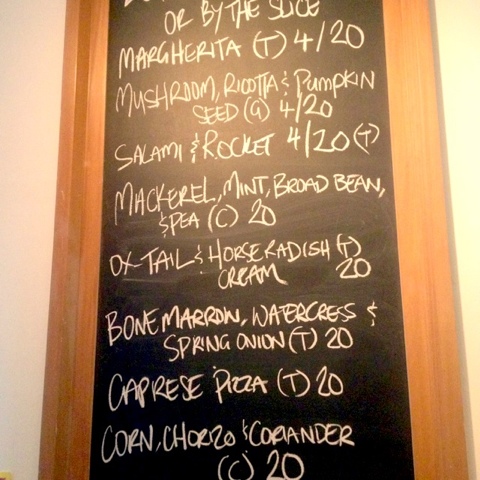 OR BY THE SLICE
MARGHERITA (T) 4/20
MUSHROOM, RICOTTA & PUMPKIN
SEED (G) 4/20
SALAMI & ROCKET 4/20 (T)
MACKEREL, MINT, BROAD BEAN,
& PEA (C) 20
OX-TAIL & HORSERADISH (T)
CREAM 20
BONE MARROW, WATERCRESS &
SPRING ONION (T) 20
CAPRESE PIZZA (T) 20
CORN, CHORIZO & CORIANDER
(C) 20